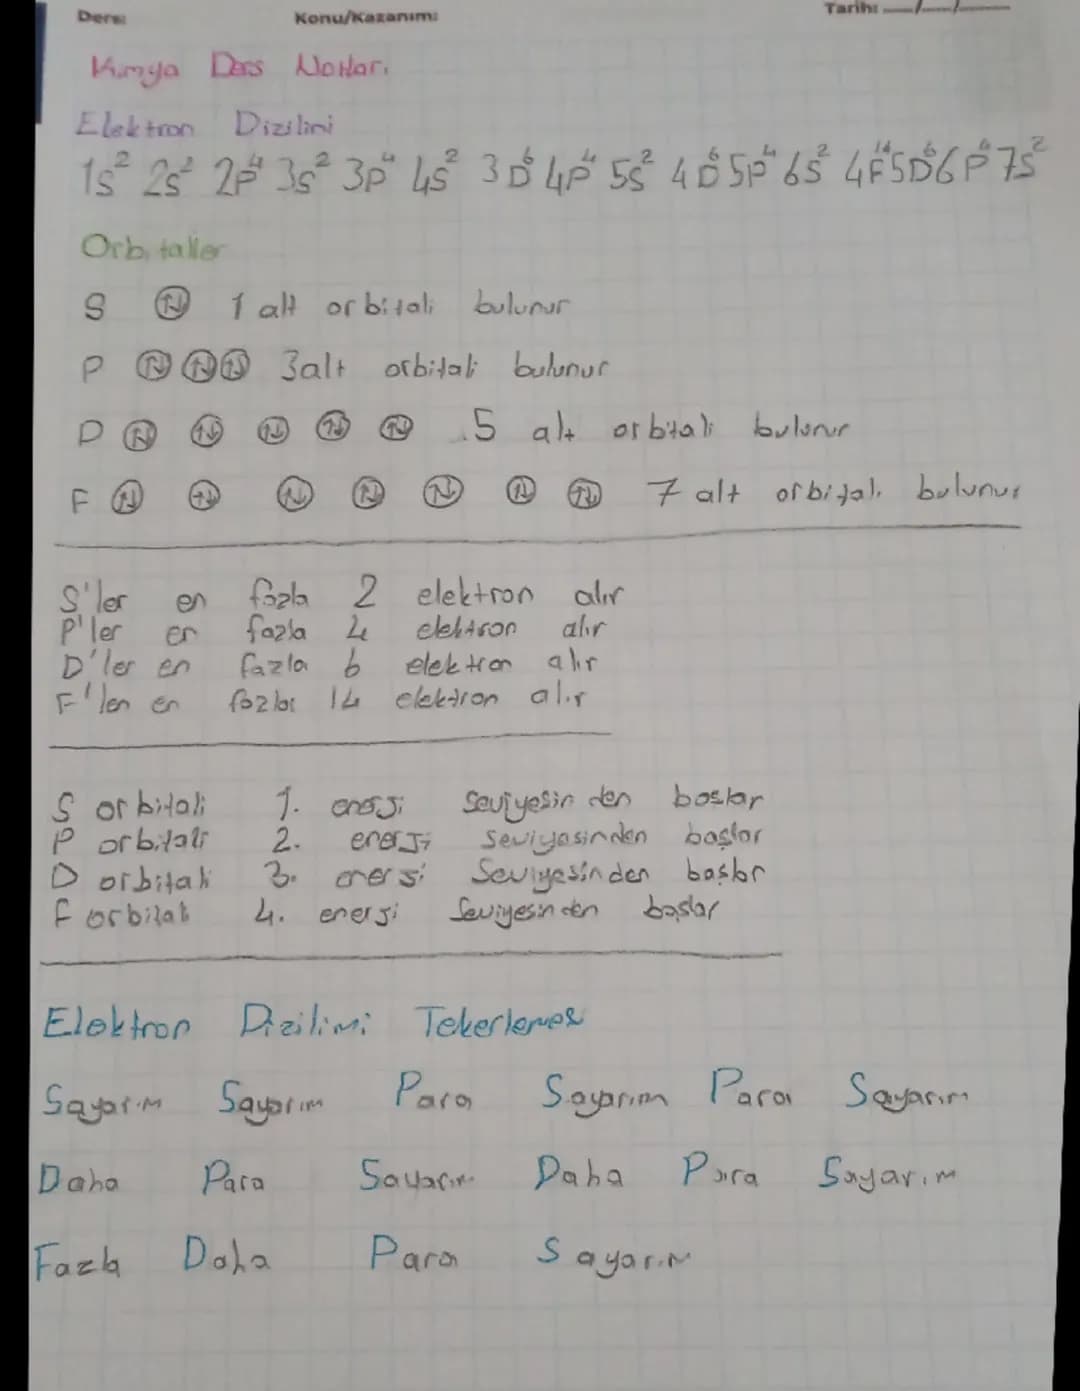 Ders: Konu/Kazanım: Tarih: ___/___/___
Kimya Ders Notları
Elektron Dizilimi
1s² 2s² 2p⁴ 3s² 3p⁴ 4s² 3D⁶ 4p⁴ 5s² 4D⁶ 5p⁴ 6s² 4F¹⁴ 5D⁶ 6p⁴ 7s²
Orbitaller
S ⇅ 1 alt orbitali bulunur
P ⇅ ⇅ ⇅ 3 alt orbitali bulunur
D ⇅ ⇅ ⇅ ⇅ ⇅ 5 alt orbitali bulunur
F ⇅ ⇅ ⇅ ⇅ ⇅ ⇅ ⇅ 7 alt orbitali bulunur
S'ler en fazla 2 elektron alır
P'ler en fazla 4 elektron alır
D'ler en fazla 6 elektron alır
F'len en fazla 14 elektron alır
S orbitali 1. enerji seviyesinden başlar
P orbitali 2. enerji seviyesinden başlar
D orbitali 3. enerji seviyesinden başlar
F orbitali 4. enerji seviyesinden başlar
Elektron Dizilimi Tekerlemesi
Sayarım Sayarım Para Sayarım Para Sayarım
Daha Para Sayarım Daha Para Sayarım
Fazla Daha Para Sayarım